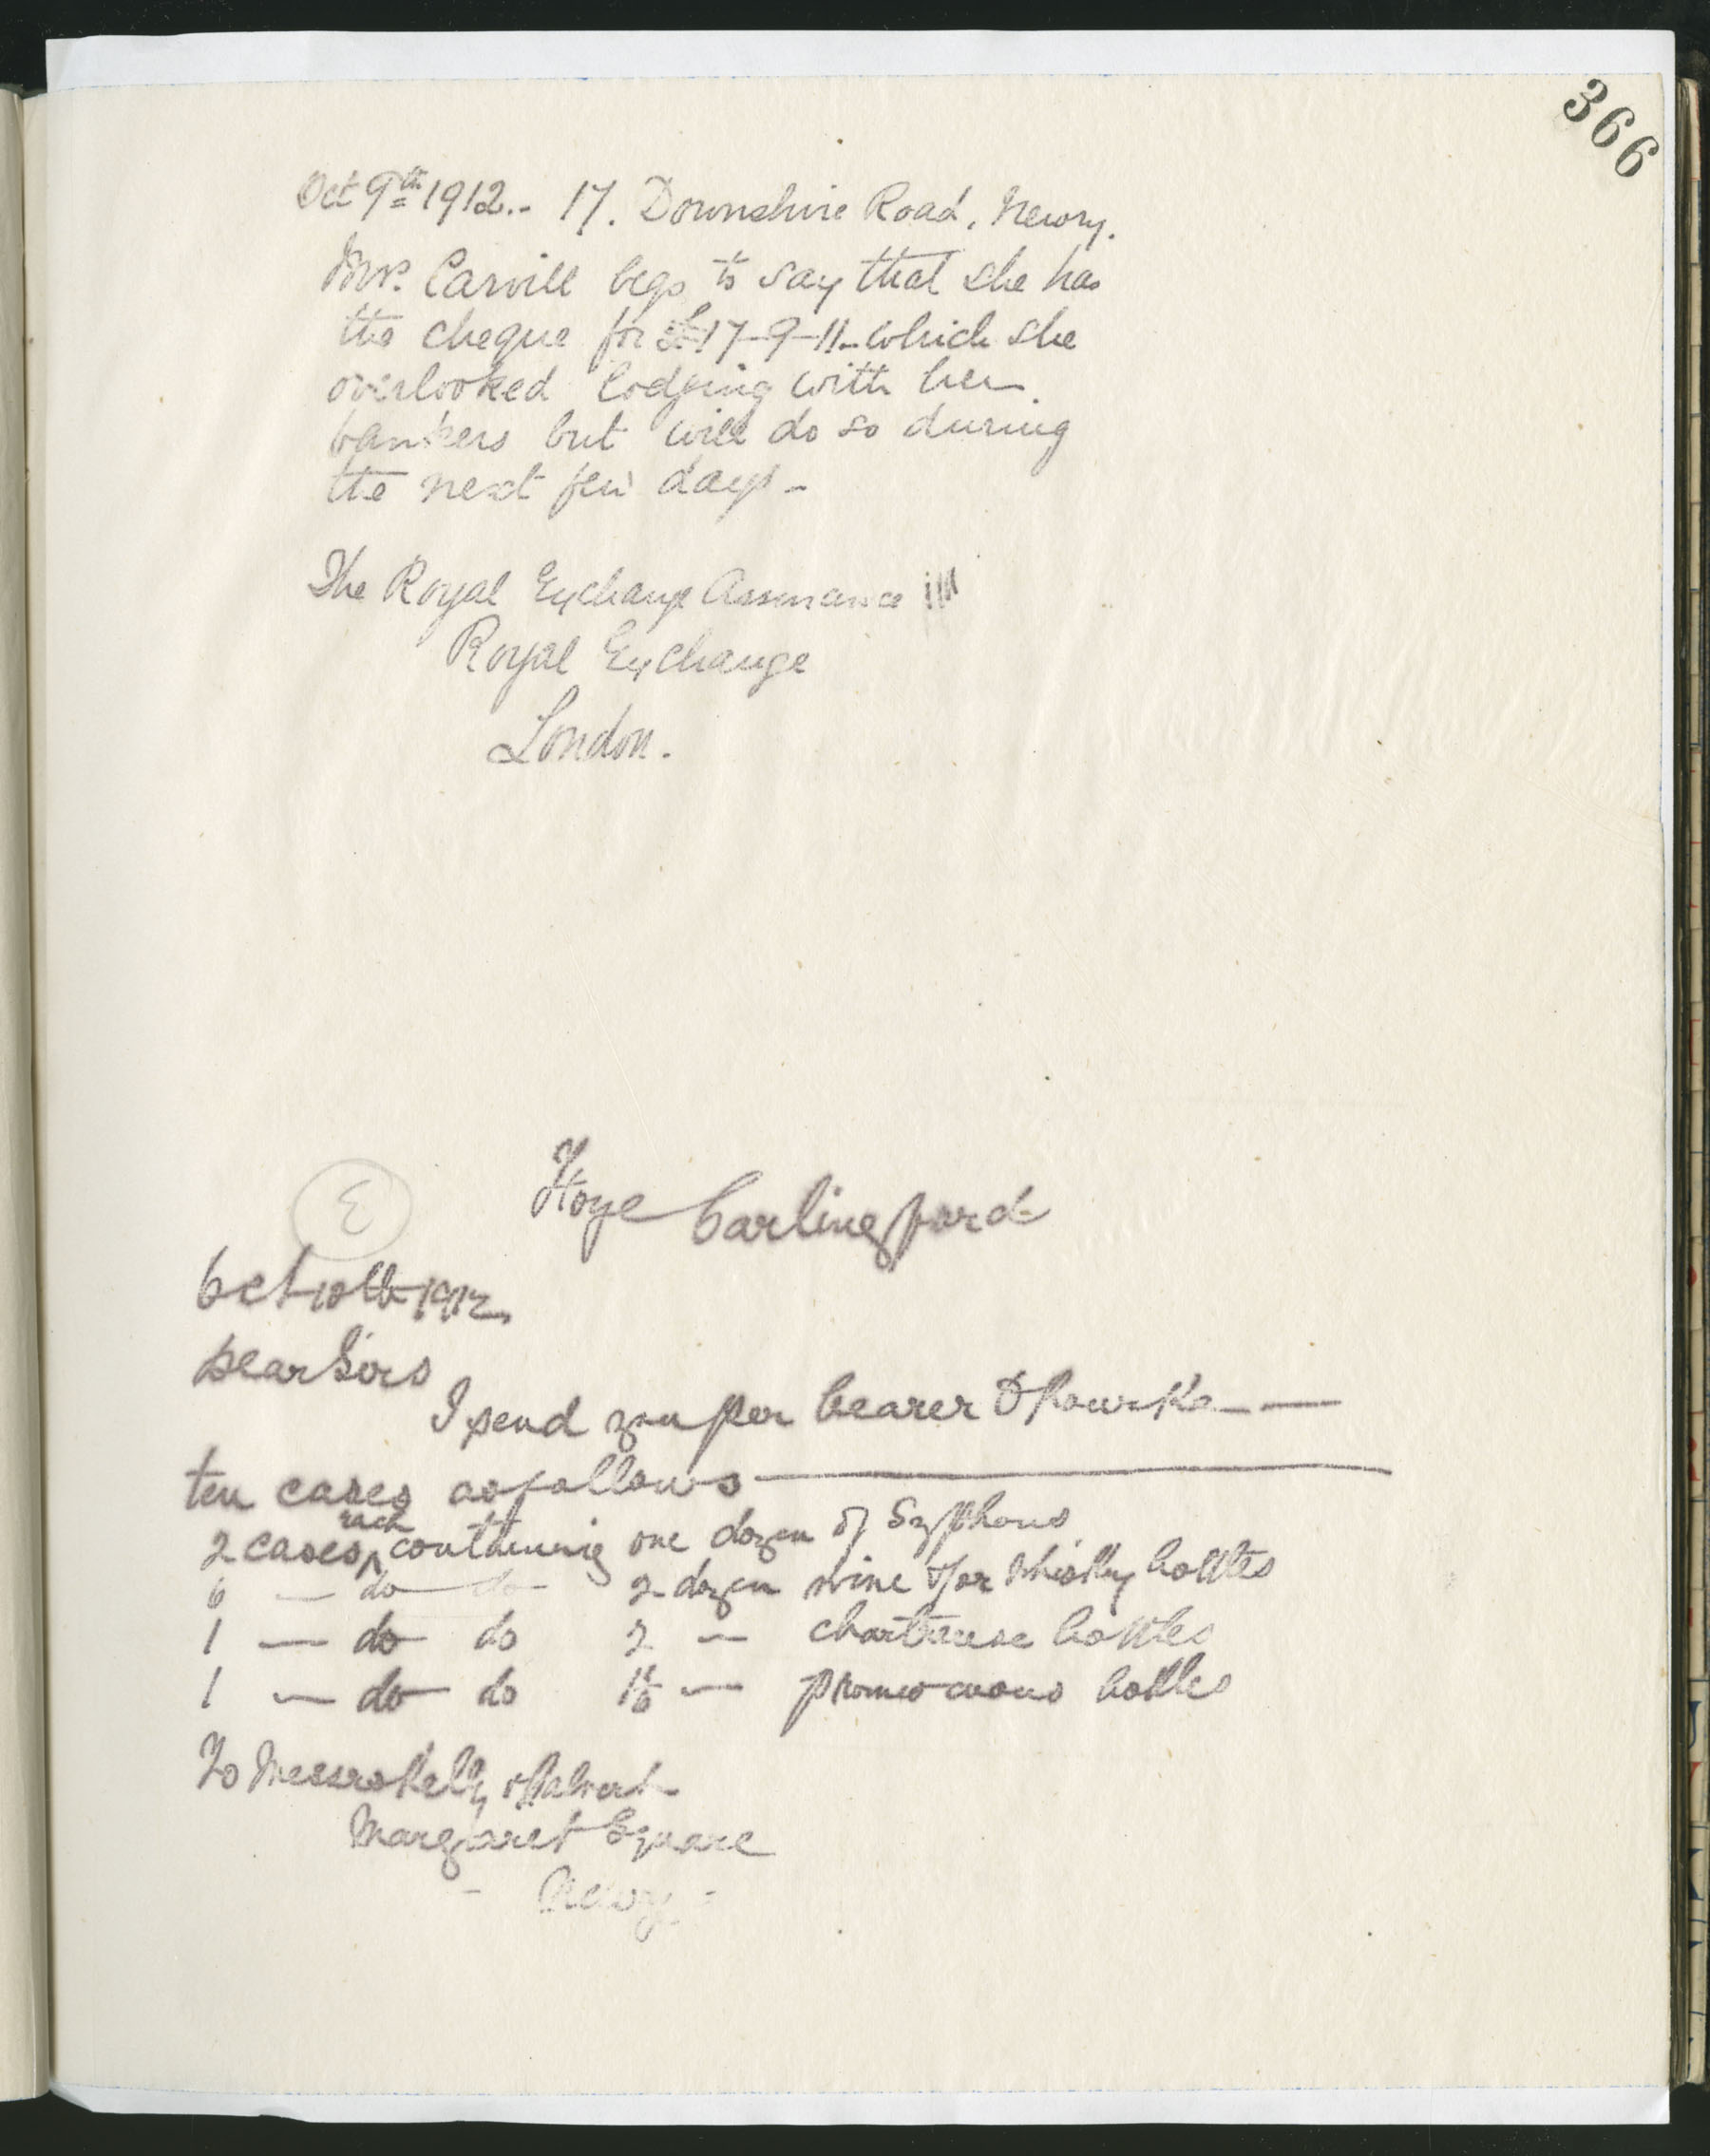 366
Oct 9th 1912.- 17. Downshire Road, Newry.
Mrs. Carvill begs to say that she has
the cheque for £17-9-11- which she
overlooked lodging with her
bankers but will do so during
the next few days-
The Royal Exchange Assurance
Royal Exchange
London.
Carlingford
Oct 10th 1912
Dear Sirs
I send you per bearer
ten cases as follows
2 cases each containing one dozen of Syphons
6 - do - do - 2 dozen wine &/or whisky bottles
1 - do do 2 - chartreuse bottles
1 - do do - bottles
To Messrs Kelly &
Margaret Square
- Newry -